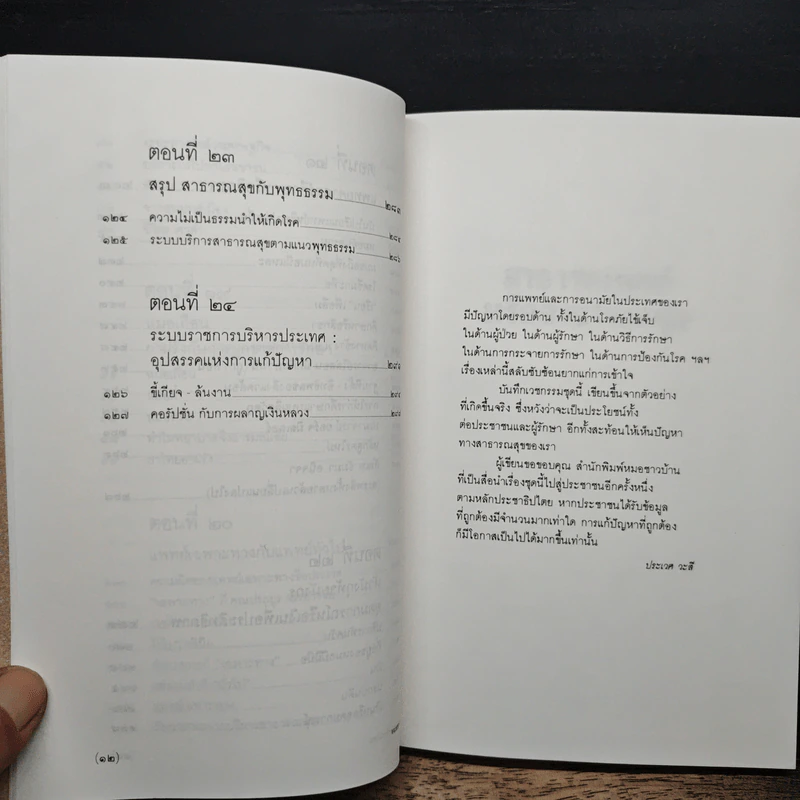 ตอนที่ ๒๓
สรุป สาธารณสุขกับพุทธธรรม ๒๘๓
๑๒๔ ความไม่เป็นธรรมนำให้เกิดโรค ๒๘๔
๑๒๕ ระบบบริการสาธารณสุขตามแนวพุทธธรรม ๒๘๖
ตอนที่ ๒๔
ระบบราชการบริหารประเทศ :
อุปสรรคแห่งการแก้ปัญหา
๑๒๖ ขี้เกียจ - ล้นงาน
๑๒๗ คอรัปชั่น กับการผลาญเงินหลวง
(๑๒)
การแพทย์และการอนามัยในประเทศของเรา
มีปัญหาโดยรอบด้าน ทั้งในด้านโรคภัยไข้เจ็บ
ในด้านผู้ป่วย ในด้านผู้รักษา ในด้านวิธีการรักษา
ในด้านการกระจายการรักษา ในด้านการป้องกันโรค ฯลฯ
เรื่องเหล่านี้สลับซับซ้อนยากแก่การเข้าใจ
บันทึกเวชกรรมชุดนี้ เขียนขึ้นจากตัวอย่าง
ที่เกิดขึ้นจริง ซึ่งหวังว่าจะเป็นประโยชน์ทั้ง
ต่อประชาชนและผู้รักษา อีกทั้งสะท้อนให้เห็นปัญหา
ทางสาธารณสุขของเรา
ผู้เขียนขอขอบคุณ สำนักพิมพ์หมอชาวบ้าน
ที่เป็นสื่อนำเรื่องชุดนี้ไปสู่ประชาชนอีกครั้งหนึ่ง
ตามหลักประชาธิปไตย หากประชาชนได้รับข้อมูล
ที่ถูกต้องมีจำนวนมากเท่าใด การแก้ปัญหาที่ถูกต้อง
ก็มีโอกาสเป็นไปได้มากขึ้นเท่านั้น
ประเวศ วะสี